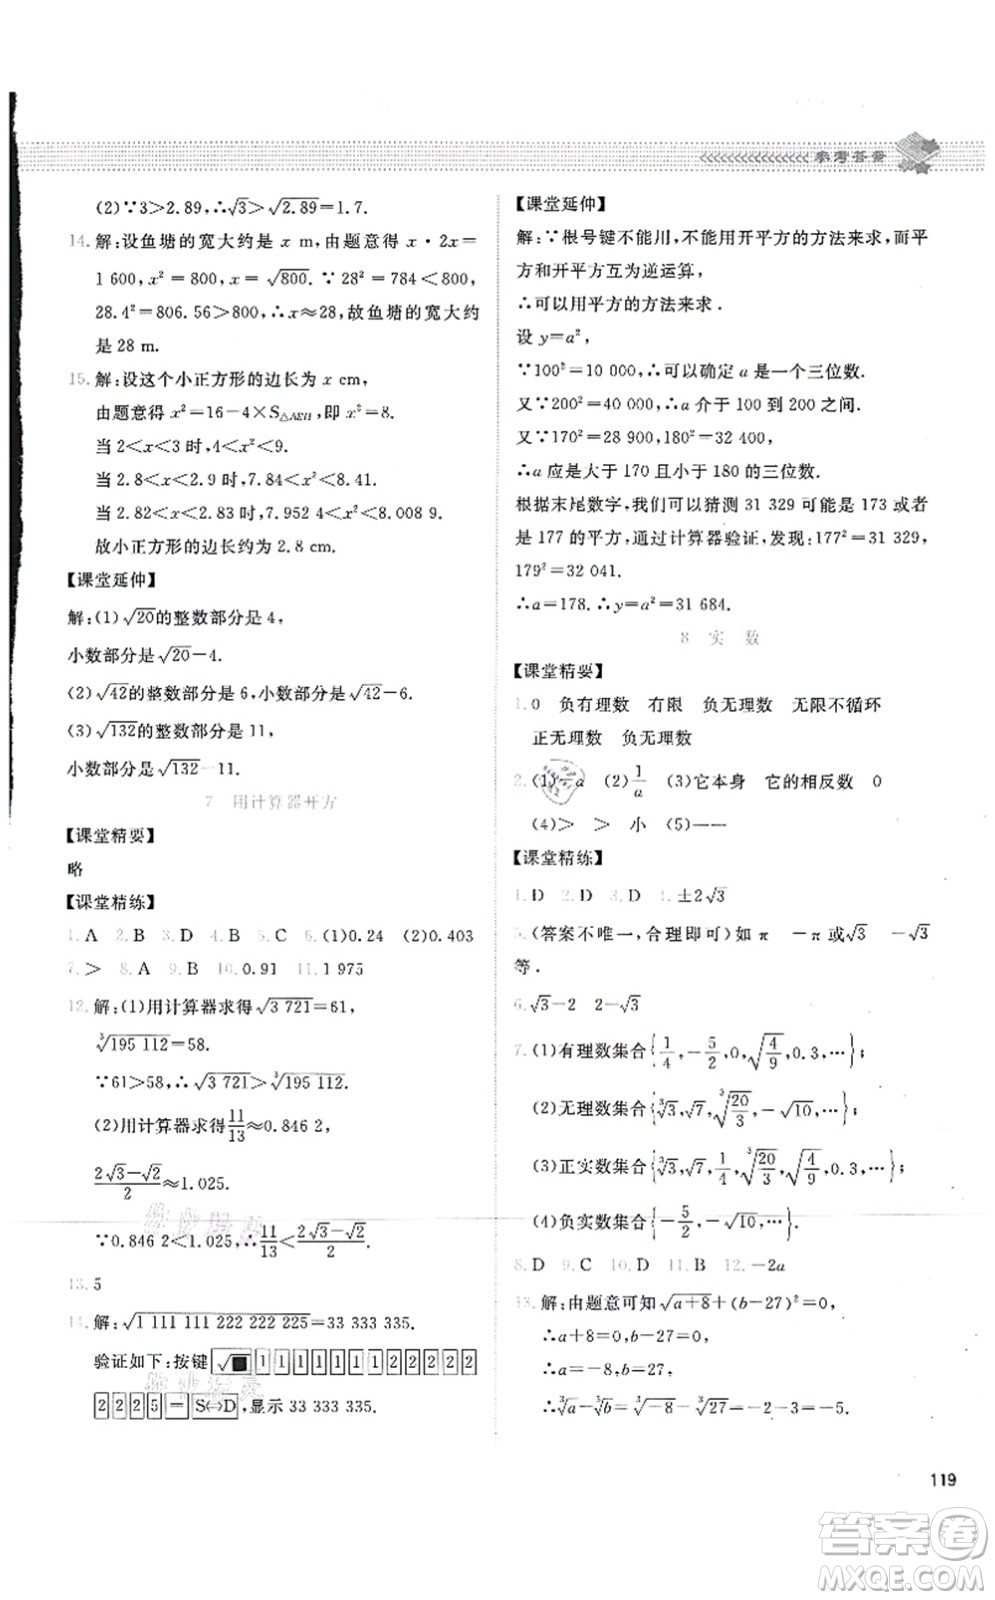 参考答案
(2)∵3>2.89,∴√3>√2.89=1.7.
14.解:设鱼塘的宽大约是 x m,由题意得 x·2x=
1 600,x²=800,x=√800.∵28²=784<800,
28.4²=806.56>800,∴x≈28,故鱼塘的宽大约
是 28 m.
15.解:设这个小正方形的边长为 x cm,
由题意得 x²=16-4×S△AEH,即 x²=8.
当 2<x<3 时,4<x²<9.
当 2.8<x<2.9 时,7.84<x²<8.41.
当 2.82<x<2.83 时,7.952 4<x²<8.008 9.
故小正方形的边长约为 2.8 cm.
【课堂延伸】
解:(1)√20的整数部分是 4,
小数部分是√20-4.
(2)√42的整数部分是 6,小数部分是√42-6.
(3)√132的整数部分是 11,
小数部分是√132-11.
7 用计算器开方
【课堂精要】
略
【课堂精练】
1.A 2.B 3.D 4.B 5.C 6.(1)0.24 (2)0.403
7.> 8.A 9.B 10.0.91 11.1 975
12.解:(1)用计算器求得√3 721=61,
∛195 112=58.
∵61>58,∴√3 721>∛195 112.
(2)用计算器求得11/13≈0.846 2,
(2√3-√2)/2≈1.025.
∵0.846 2<1.025,∴11/13<(2√3-√2)/2.
13.5
14.解:√1 111 111 222 222 225=33 333 335.
验证如下:按键√■ 1 1 1 1 1 1 1 2 2 2 2 2
2 2 2 5 = S⇔D,显示 33 333 335.
【课堂延伸】
解:∵根号键不能用,不能用开平方的方法来求,而平
方和开平方互为逆运算,
∴可以用平方的方法来求.
设 y=a²,
∵100²=10 000,∴可以确定 a 是一个三位数.
又∵200²=40 000,∴a 介于 100 到 200 之间.
又∵170²=28 900,180²=32 400,
∴a 应是大于 170 且小于 180 的三位数.
根据末尾数字,我们可以猜测 31 329 可能是 173 或者
是 177 的平方,通过计算器验证,发现:177²=31 329,
179²=32 041.
∴a=178.∴y=a²=31 684.
8 实 数
【课堂精要】
1.0 负有理数 有限 负无理数 无限不循环
正无理数 负无理数
2.(1)-a (2)1/a (3)它本身 它的相反数 0
(4)> > 小 (5)一一
【课堂精练】
1.D 2.D 3.D 4.±2√3
5.(答案不唯一,合理即可)如 π -π或√3 -√3
等.
6.√3-2 2-√3
7.(1)有理数集合{1/4,-5/2,0,√(4/9),0.3,…};
(2)无理数集合{∛3,√7,∛(20/3),-√10,…};
(3)正实数集合{∛3,√7,1/4,∛(20/3),√(4/9),0.3,…};
(4)负实数集合{-5/2,-√10,…};
8.D 9.C 10.D 11.B 12.-2a
13.解:由题意可知√(a+8)+(b-27)²=0,
∴a+8=0,b-27=0,
∴a=-8,b=27,
∴∛a-∛b=∛-8-∛27=-2-3=-5.
119
答案卷
MXQE.COM